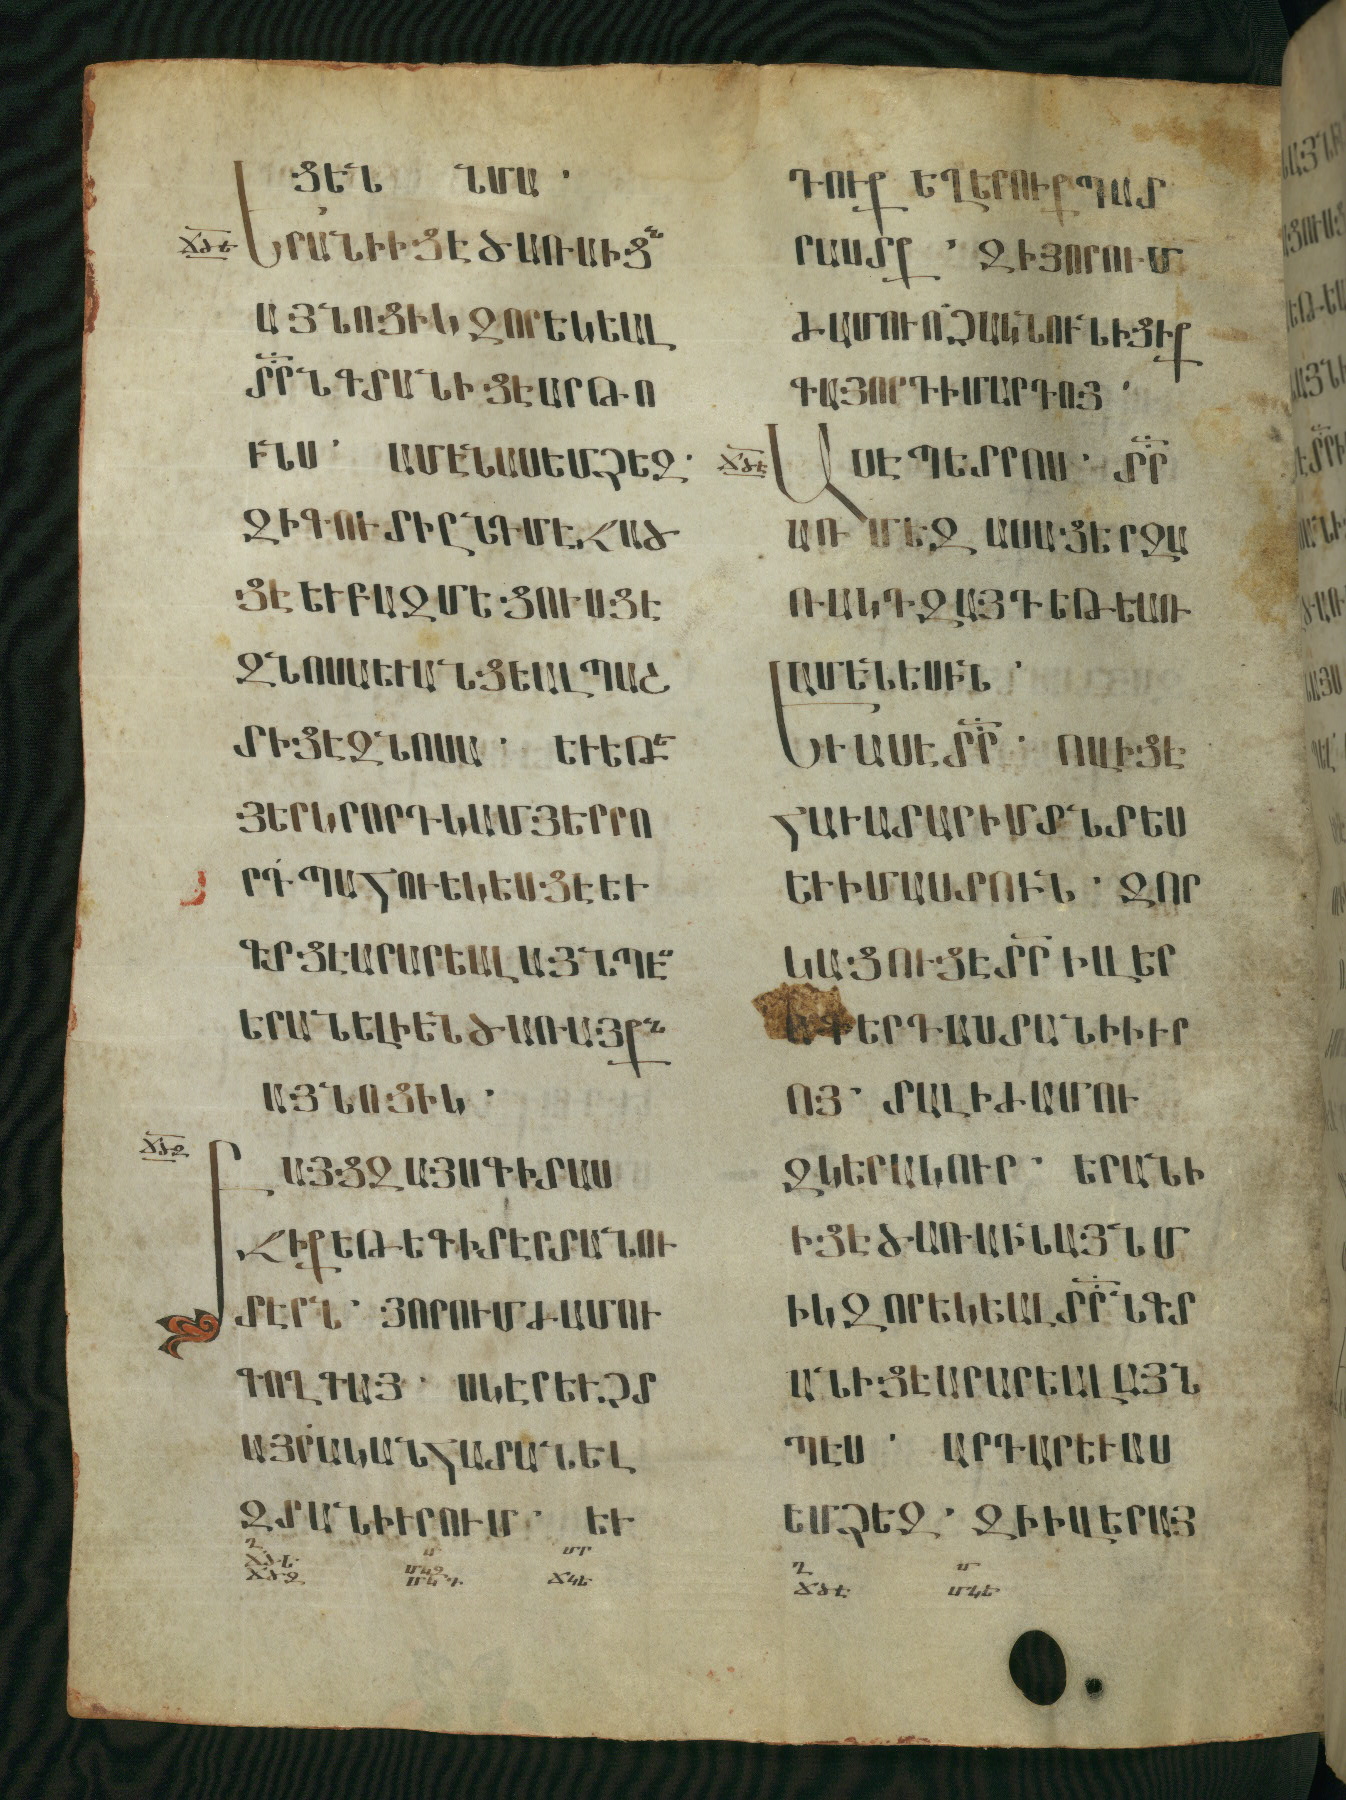 ՑԷՆ ՆՄԱ ·
ՃԾԵ
ԵՐԱՆԻ ԻՑԷ ԾԱՌԱԻՑՆ
ԱՅՆՈՑԻԿ ԶՈՐ ԵԿԵԱԼ
ՏՐՆ ԳՏԱՆԻՑԷ ԱՐԹՈ
ՒՆՍ · ԱՄԷՆ ԱՍԵՄ ՁԵԶ ·
ԶԻ ԳՈՒՏԻ ԸՆԴ ՄԷՋ ԱԾ
ՑԷ ԵՒ ԲԱԶՄԵՑՈՒՍՑԷ
ԶՆՈՍԱ ԵՒ ԱՆՑԵԱԼ ՊԱՇ
ՏԻՑԷ ԶՆՈՍԱ · ԵՒ ԵԹԷ
ՅԵՐԿՐՈՐԴ ԿԱՄ ՅԵՐՐՈ
ՐԴ ՊԱՀՈՒ ԵԿԵՍՑԷ ԵՒ
ԳՏՑԷ ԱՐԱՐԵԱԼ ԱՅՆՊԷՍ
ԵՐԱՆԵԼԻ ԵՆ ԾԱՌԱՅՔՆ
ԱՅՆՈՑԻԿ ·
ՃԾԶ
ԲԱՅՑ ԶԱՅՍ ԳԻՏԱՍ
ՋԻՔ ԵԹԵ ԳԻՏԷՐ ՏԱՆՈՒ
ՏԷՐՆ · ՅՈՐՈՒՄ ԺԱՄՈՒ
ԳՈՂ ԳԱՅ · ՍԿԷՐ ԵՒ Չ Տ
ԱՅՐ ԱԿԱՆ ՀԱՏԱՆԵԼ
ԶՏԱՆ ԻՒՐՈՒՄ · ԵՒ
ԴՈՒՔ ԵՂԵՐՈՒՔ ՊԱՏ
ՐԱՍՏՔ · ԶԻ ՅՈՐՈՒՄ
ԺԱՄՈՒ ՈՉ ԱԿՆ ՈՒՆԻՑԻՔ
ԳԱՅ ՈՐԴԻ ՄԱՐԴՈՅ ·
ՃԾԷ
ԱՍԷ ՊԵՏՐՈՍ · ՏՐ
ԱՌ ՄԵԶ ԱՍԱՑԵՐ ԶԱ
ՌԱԿԴ ԶԱՅԴ ԵԹԵ ԱՌ
ԱՄԵՆԵՍԻՆ ·
ԵՒ ԱՍԷ ՏՐ · Ո ԻՑԷ
ՀԱՒԱՏԱՐԻՄ ՏՆՏԵՍ
ԵՒ ԻՄԱՍՏՈՒՆ · ԶՈՐ
ԿԱՑՈՒՑԷ ՏՐ Ի ՎԵՐ
ԱԳԵՐԴԱՍՏԱՆԻ ԻՒՐ
ՈՅ · ՏԱԼ Ի ԺԱՄՈՒ
ԶԿԵՐԱԿՈՒՐ · ԵՐԱՆԻ
ԻՑԷ ԾԱՌԱԻՆ ԱՅՆՄ
ԻԿ ԶՈՐ ԵԿԵԱԼ ՏՐՆ ԳՏ
ԱՆԻՑԷ ԱՐԱՐԵԱԼ ԱՅՆ
ՊԷՍ · ԱՐԴԱՐԵՒ ԱՍ
ԵՄ ՁԵԶ · ԶԻ Ի ՎԵՐԱՅ
ՃԾԷ ՄԿԵ